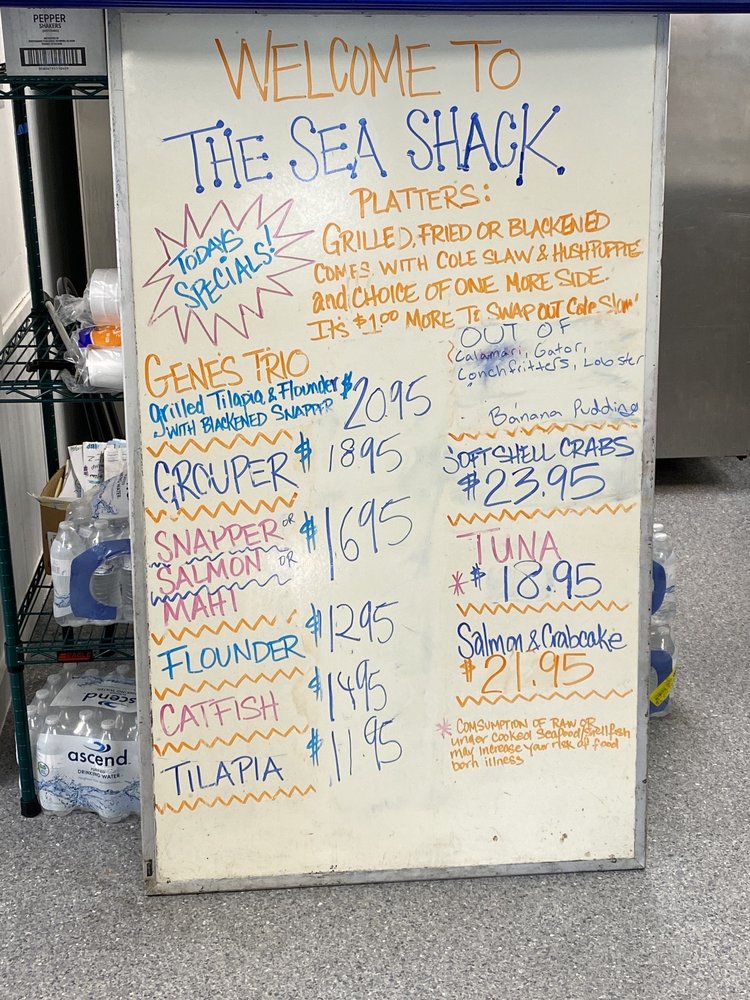 PEPPER
SHAKERS
WELCOME TO
THE SEA SHACK
TODAYS
SPECIALS!
PLATTERS:
GRILLED, FRIED OR BLACKENED
COMES WITH COLE SLAW & HUSHPUPPIE
and CHOICE OF ONE MORE SIDE.
ITS $1.00 MORE TO SWAP OUT Cole Slaw
OUT OF
Calamari, Gator,
Conchfritters, Lobster
Banana Pudding
GENES TRIO
Grilled Tilapia & Flounder
WITH BLACKENED SNAPPER
$20.95
GROUPER $1895
SNAPPER OR
SALMON OR
MAHI
$1695
FLOUNDER $1295
CATFISH $1495
TILAPIA $11.95
SOFTSHELL CRABS
$23.95
TUNA
* $18.95
Salmon & Crabcake
$21.95
* COMSUMPTION OF RAW OR
under cooked Seafood/Shellfish
may increase your risk of food
born illness
ascend
DRINKING WATER